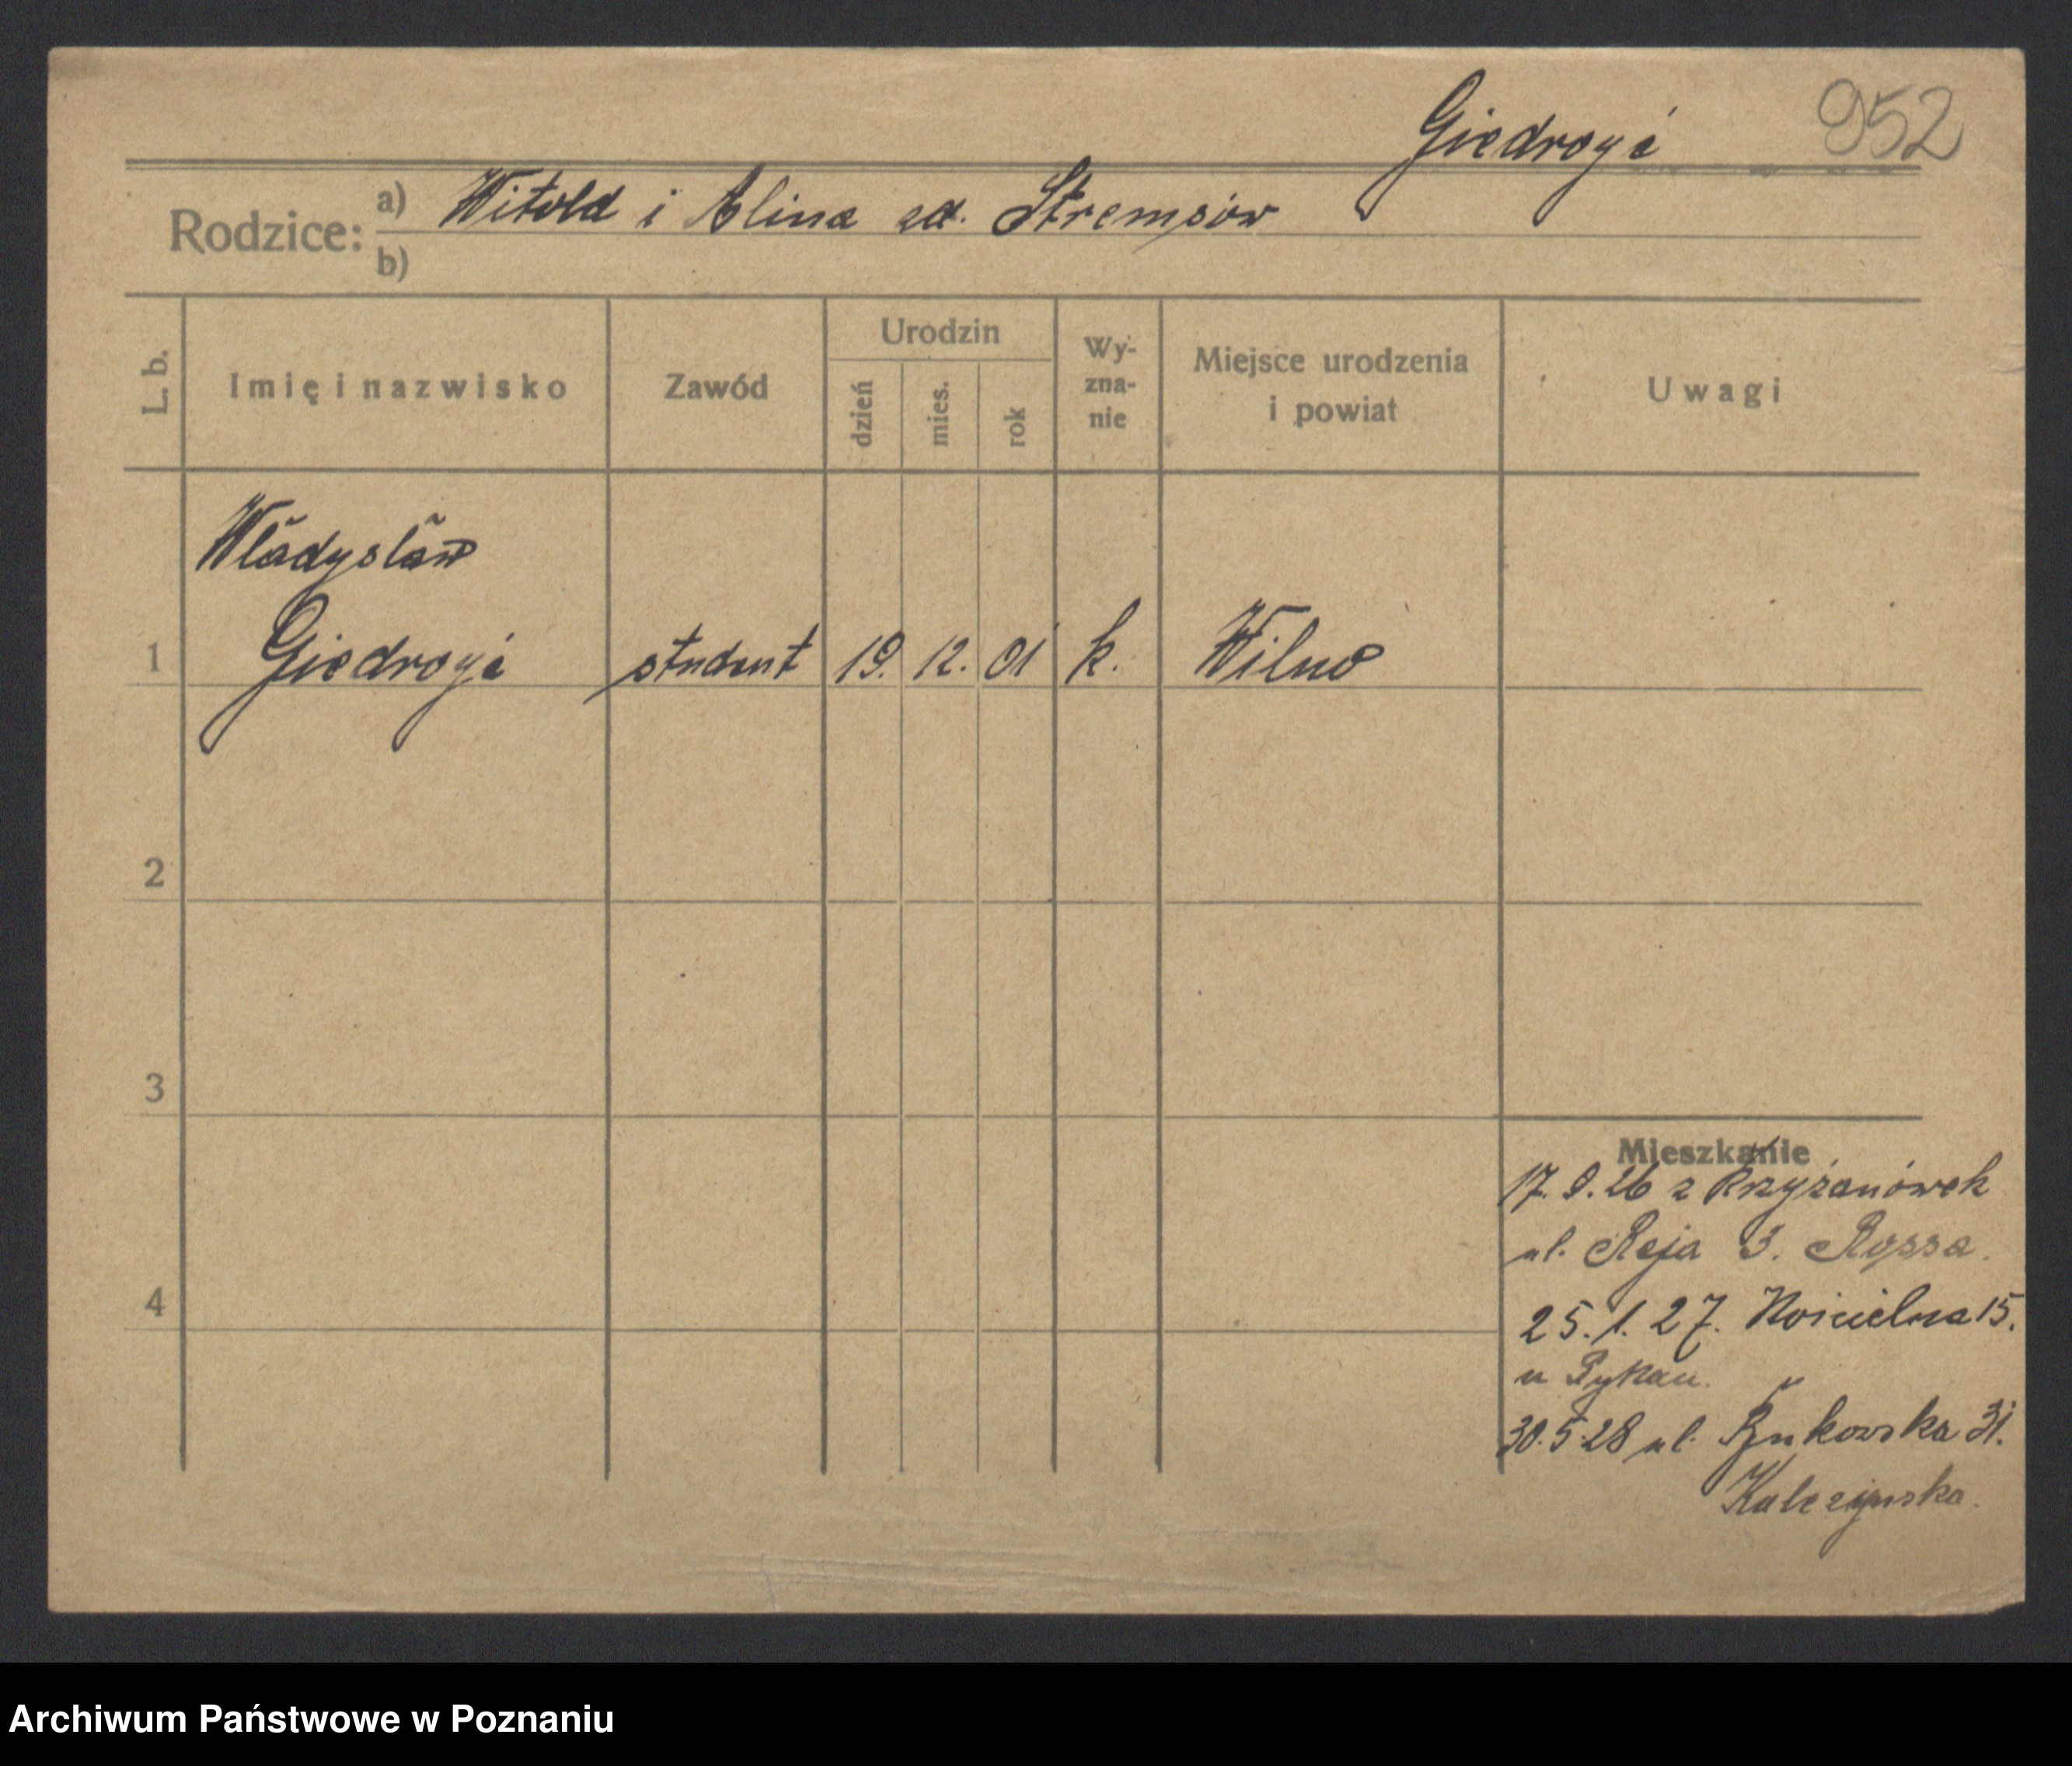 Giedroyć 952
Rodzice: a) Witold i Alina zd. Stremsów
b)
L. b. Imię i nazwisko Zawód Urodzin dzień mies. rok Wy-zna-nie Miejsce urodzenia i powiat Uwagi
Władysław
1 Giedroyć student 19. 12. 01 k. Wilno
2
3
4
Mieszkanie
17. 9. 26 z Krzyżanówek
ul. Reja 3. Rossa.
25. 1. 27. Kościelna 15.
u
30. 5. 28 ul. Bukowska 31.
Archiwum Państwowe w Poznaniu